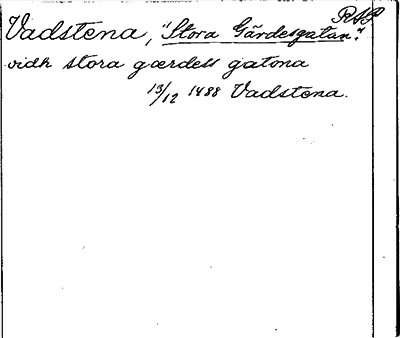 RAP
Vadstena, "Stora Gärdesgatan".
vidh stora gærdess gatona
13/12 1488 Vadstena.